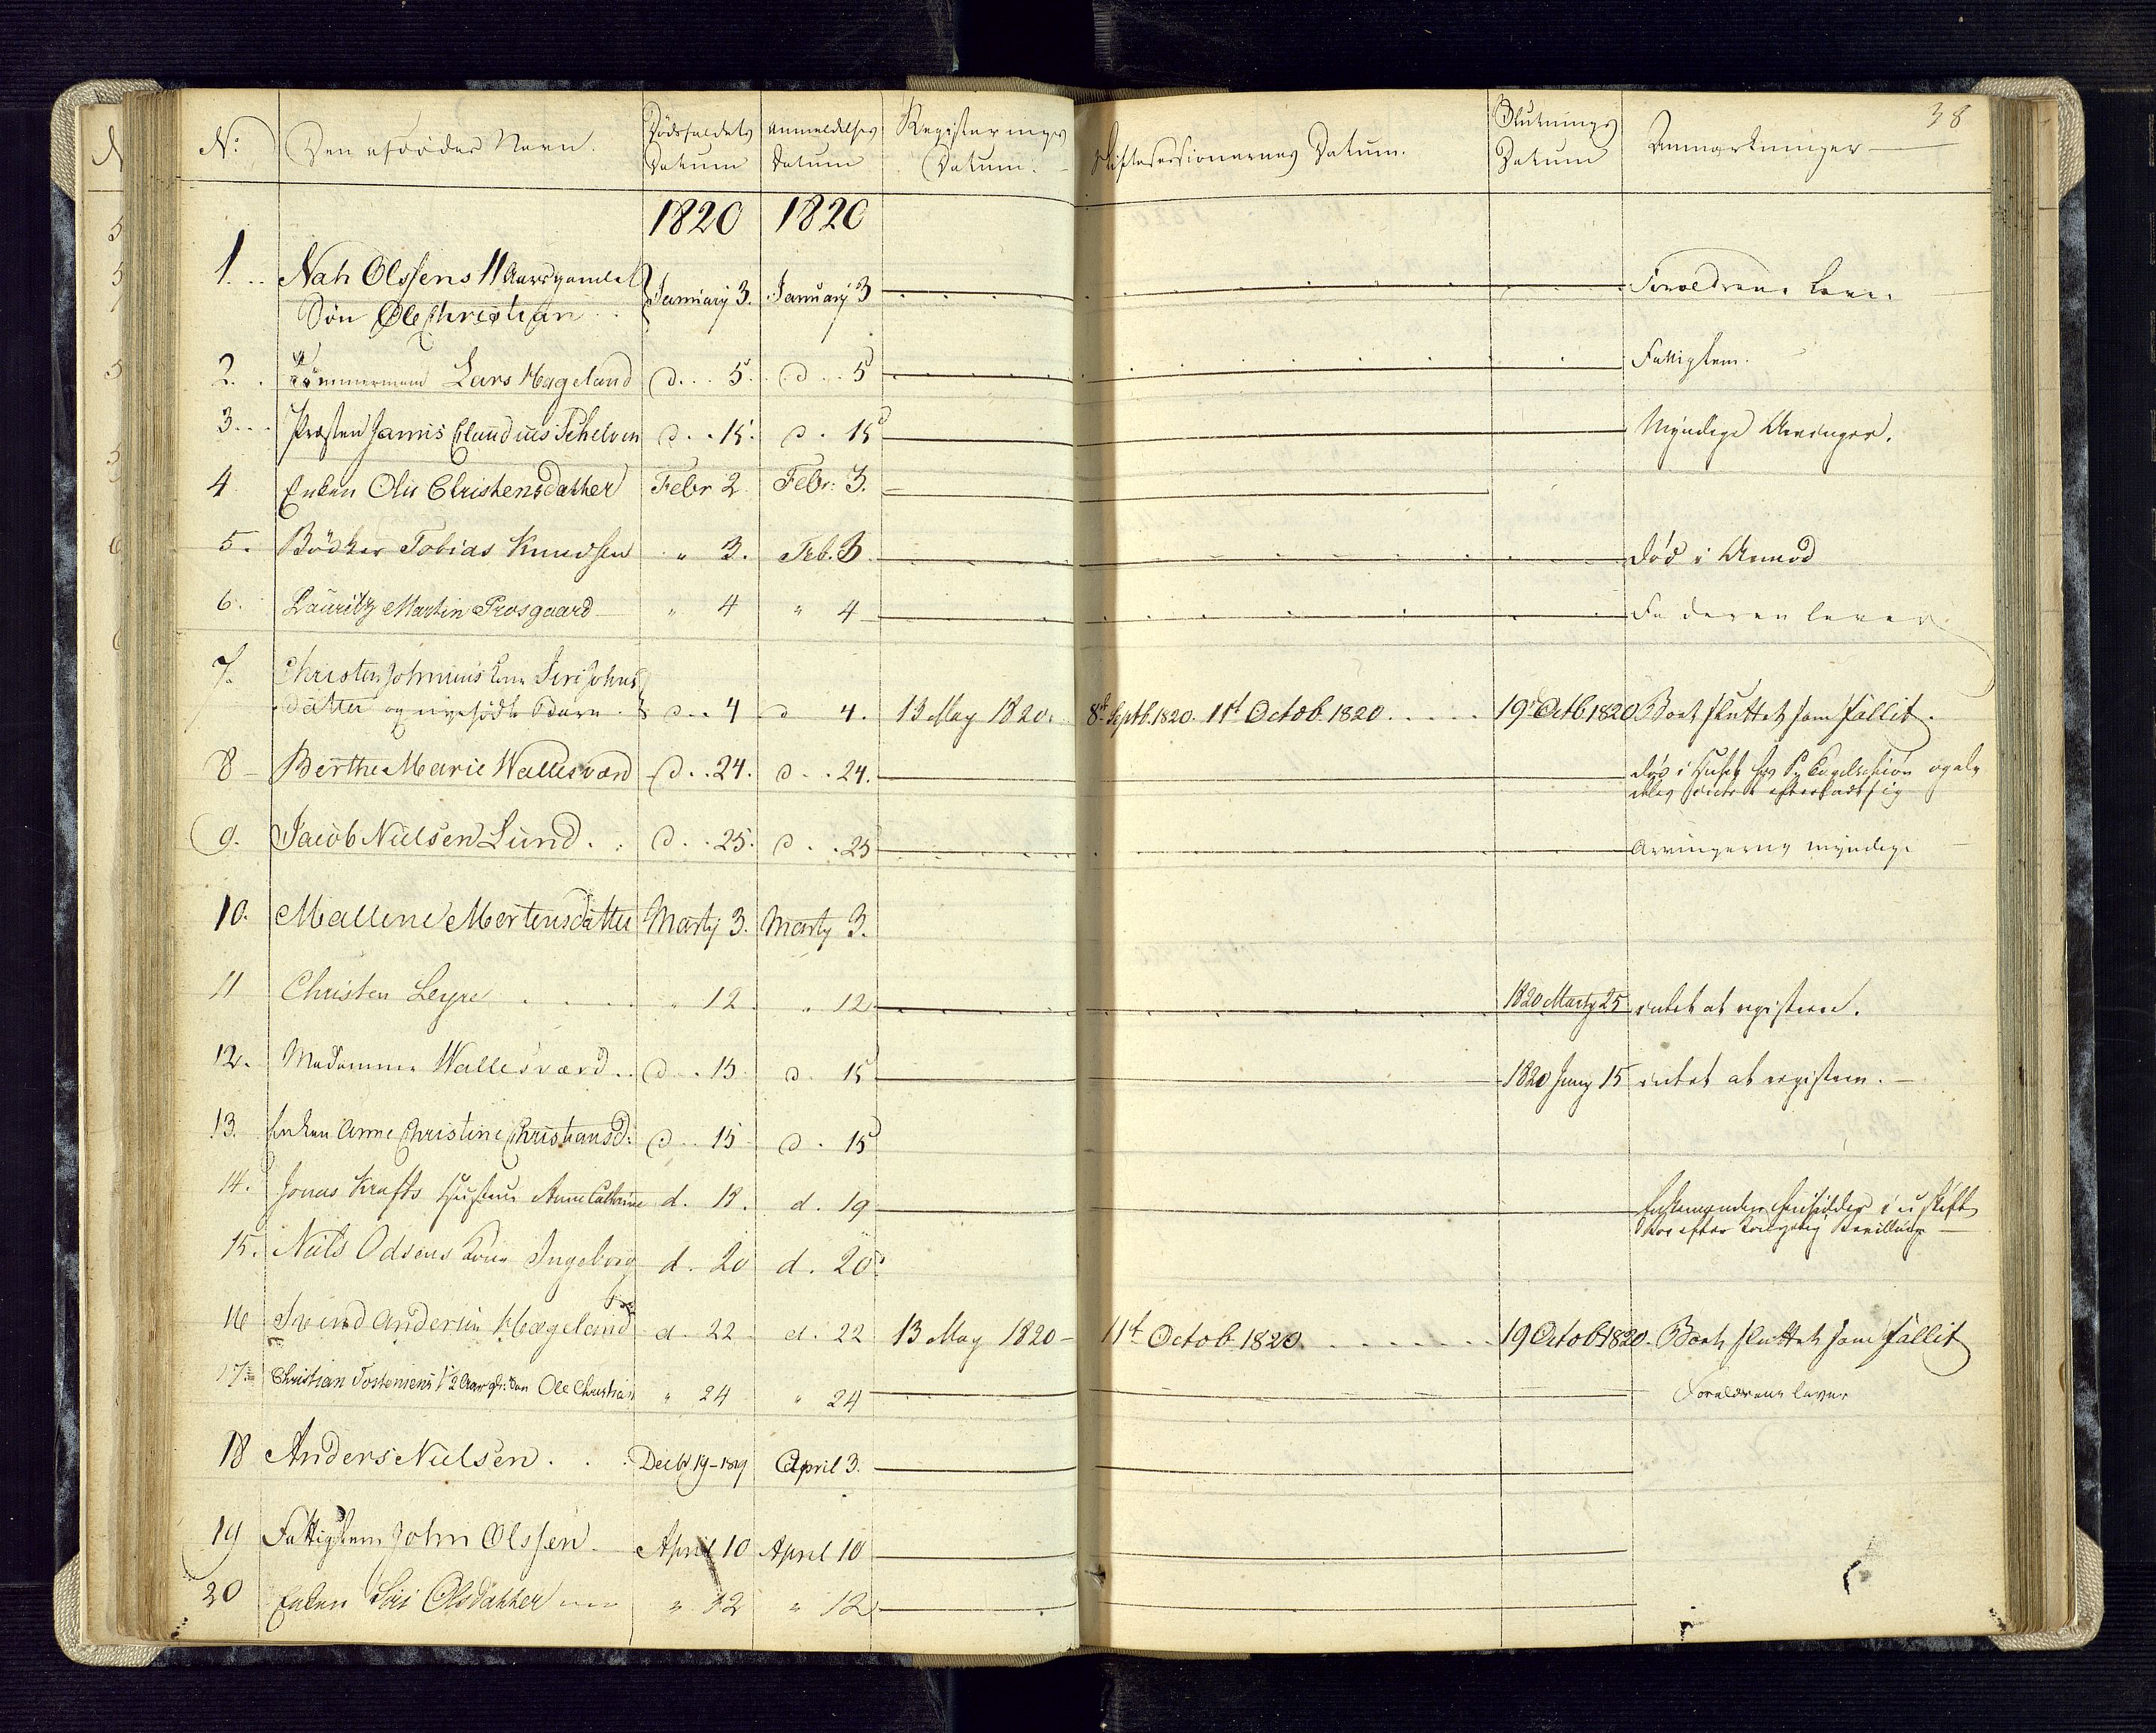 38
No Den afdødes Navn. Dødsfaldets Datum Anmeldelses Datum Registerings Datum. Skiftesessionernes Datum. Slutnings Datum Anmærkninger
1820 1820
1. Nah Olssens 11 Aars gamle Januarij 3. Januarij 3 Forældrene lever
Søn Ole Christian
2. Tømmermand Lars Hageland d. 5. d. 5 Fattiglem.
3. Præsten Claudius Schelven d. 15. d. 15 Myndige Arvinger.
4 Enken Christensdatter Febr 2 Febr: 3.
5. Bödker Tobias Knudsen " 3. Feb. 3. Död i Armod
6. Lauritz Martin Prosgaard " 4 " 4 Faderen lever
7. Christen Kone Siri Johns
datter og nyefødte Barn d. 4 d 4. 13 May 1820. 8de Septb. 1820. 11te Octob. 1820. 19 Octb 1820 Boet sluttet som fallit.
8 Berthe Marie Wallesværd d. 24. d. 24. død i Huset hos og
efterladt sig
9. Jacob Nielsen Lund. d. 25. d. 25 Arvingerne myndige
10. Mallene Mortensdatter Martij 3. Martij 3.
11 Christen Leyre " 12 " 12 1820 Martij 25 intet at registrere.
12. Madamme Wallesværd d. 15 d. 15 1820 Juny 15 intet at registrere.
13. Enken Anne Christine Christiansd: d. 15 d. 15
14. Jonas Krafts Hustrue Anne Cathrine d. 18. d. 19 Enkemanden hensidder i uskiftet
Boe efter Kongelig Bevilling
15. Niels Odsens Kone Ingeborg d. 20 d. 20
16 Svend Andersen Hægeland d. 22 d. 22 13 May 1820 11te Octob 1820. 19 Octob 1820. Boet sluttet som fallit
17 Christian Tostensens 1/2 Aar gl: Søn Ole Christian " 24 " 24 Forældrene lever
18 Anders Nielsen. Decbr 19-1819 April 3.
19 Fattiglem John Olssen. April 10 April 10
20 Enken Siri Olsdatter " 12 " 12